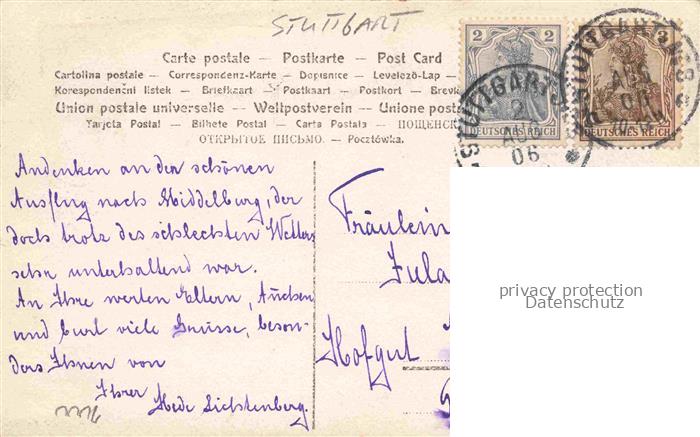 STUTTGART
Carte postale — Postkarte — Post Card
Cartolina postale — Correspondenz-Karte — Dopisnice — Levelező-Lap —
Korespondenční listek — Briefkaart — Postkaart — Postkort — Brevk
Union postale universelle — Weltpostverein — Unione posta
Tarjeta Postal — Bilhete Postal — Carta Postala — ПОЩЕНСК
ОТКРЫТОЕ ПИСЬМО. — Pocztówka.
2 2
DEUTSCHES REICH
3
DEUTSCHES REICH
STUTTGART
2
AUG
06
STUTTGART
AUG
Andenken an den schönen
Ausflug nach Middelburg, der
doch trotz des schlechten Wetters
sehr unterhaltend war.
An Ihre werten Eltern,
und Curl viele Grüsse, beson-
ders Ihnen von
Ihrer
Hede Lichtenberg.
Fräulein
Jula
Hofgut
privacy protection
Datenschutz